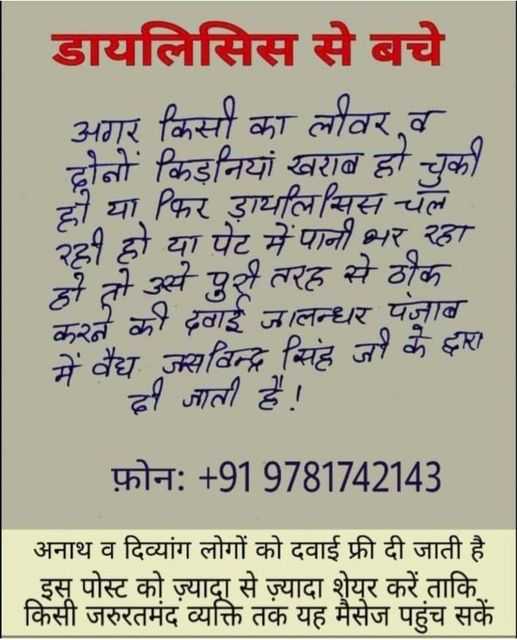 डायलिसिस से बचे
अगर किसी का लीवर व
दोनों किडनियां खराब हो चुकी
हों या फिर डायलिसिस चल
रही हो या पेट में पानी भर रहा
हो तो उसे पुरी तरह से ठीक
करने की दवाई जालन्धर पंजाब
में वैध जसविन्द्र सिंह जी के द्वारा
दी जाती है!
फ़ोन: +91 9781742143
अनाथ व दिव्यांग लोगों को दवाई फ्री दी जाती है
इस पोस्ट को ज़्यादा से ज़्यादा शेयर करें ताकि
किसी जरुरतमंद व्यक्ति तक यह मैसेज पहुंच सकें